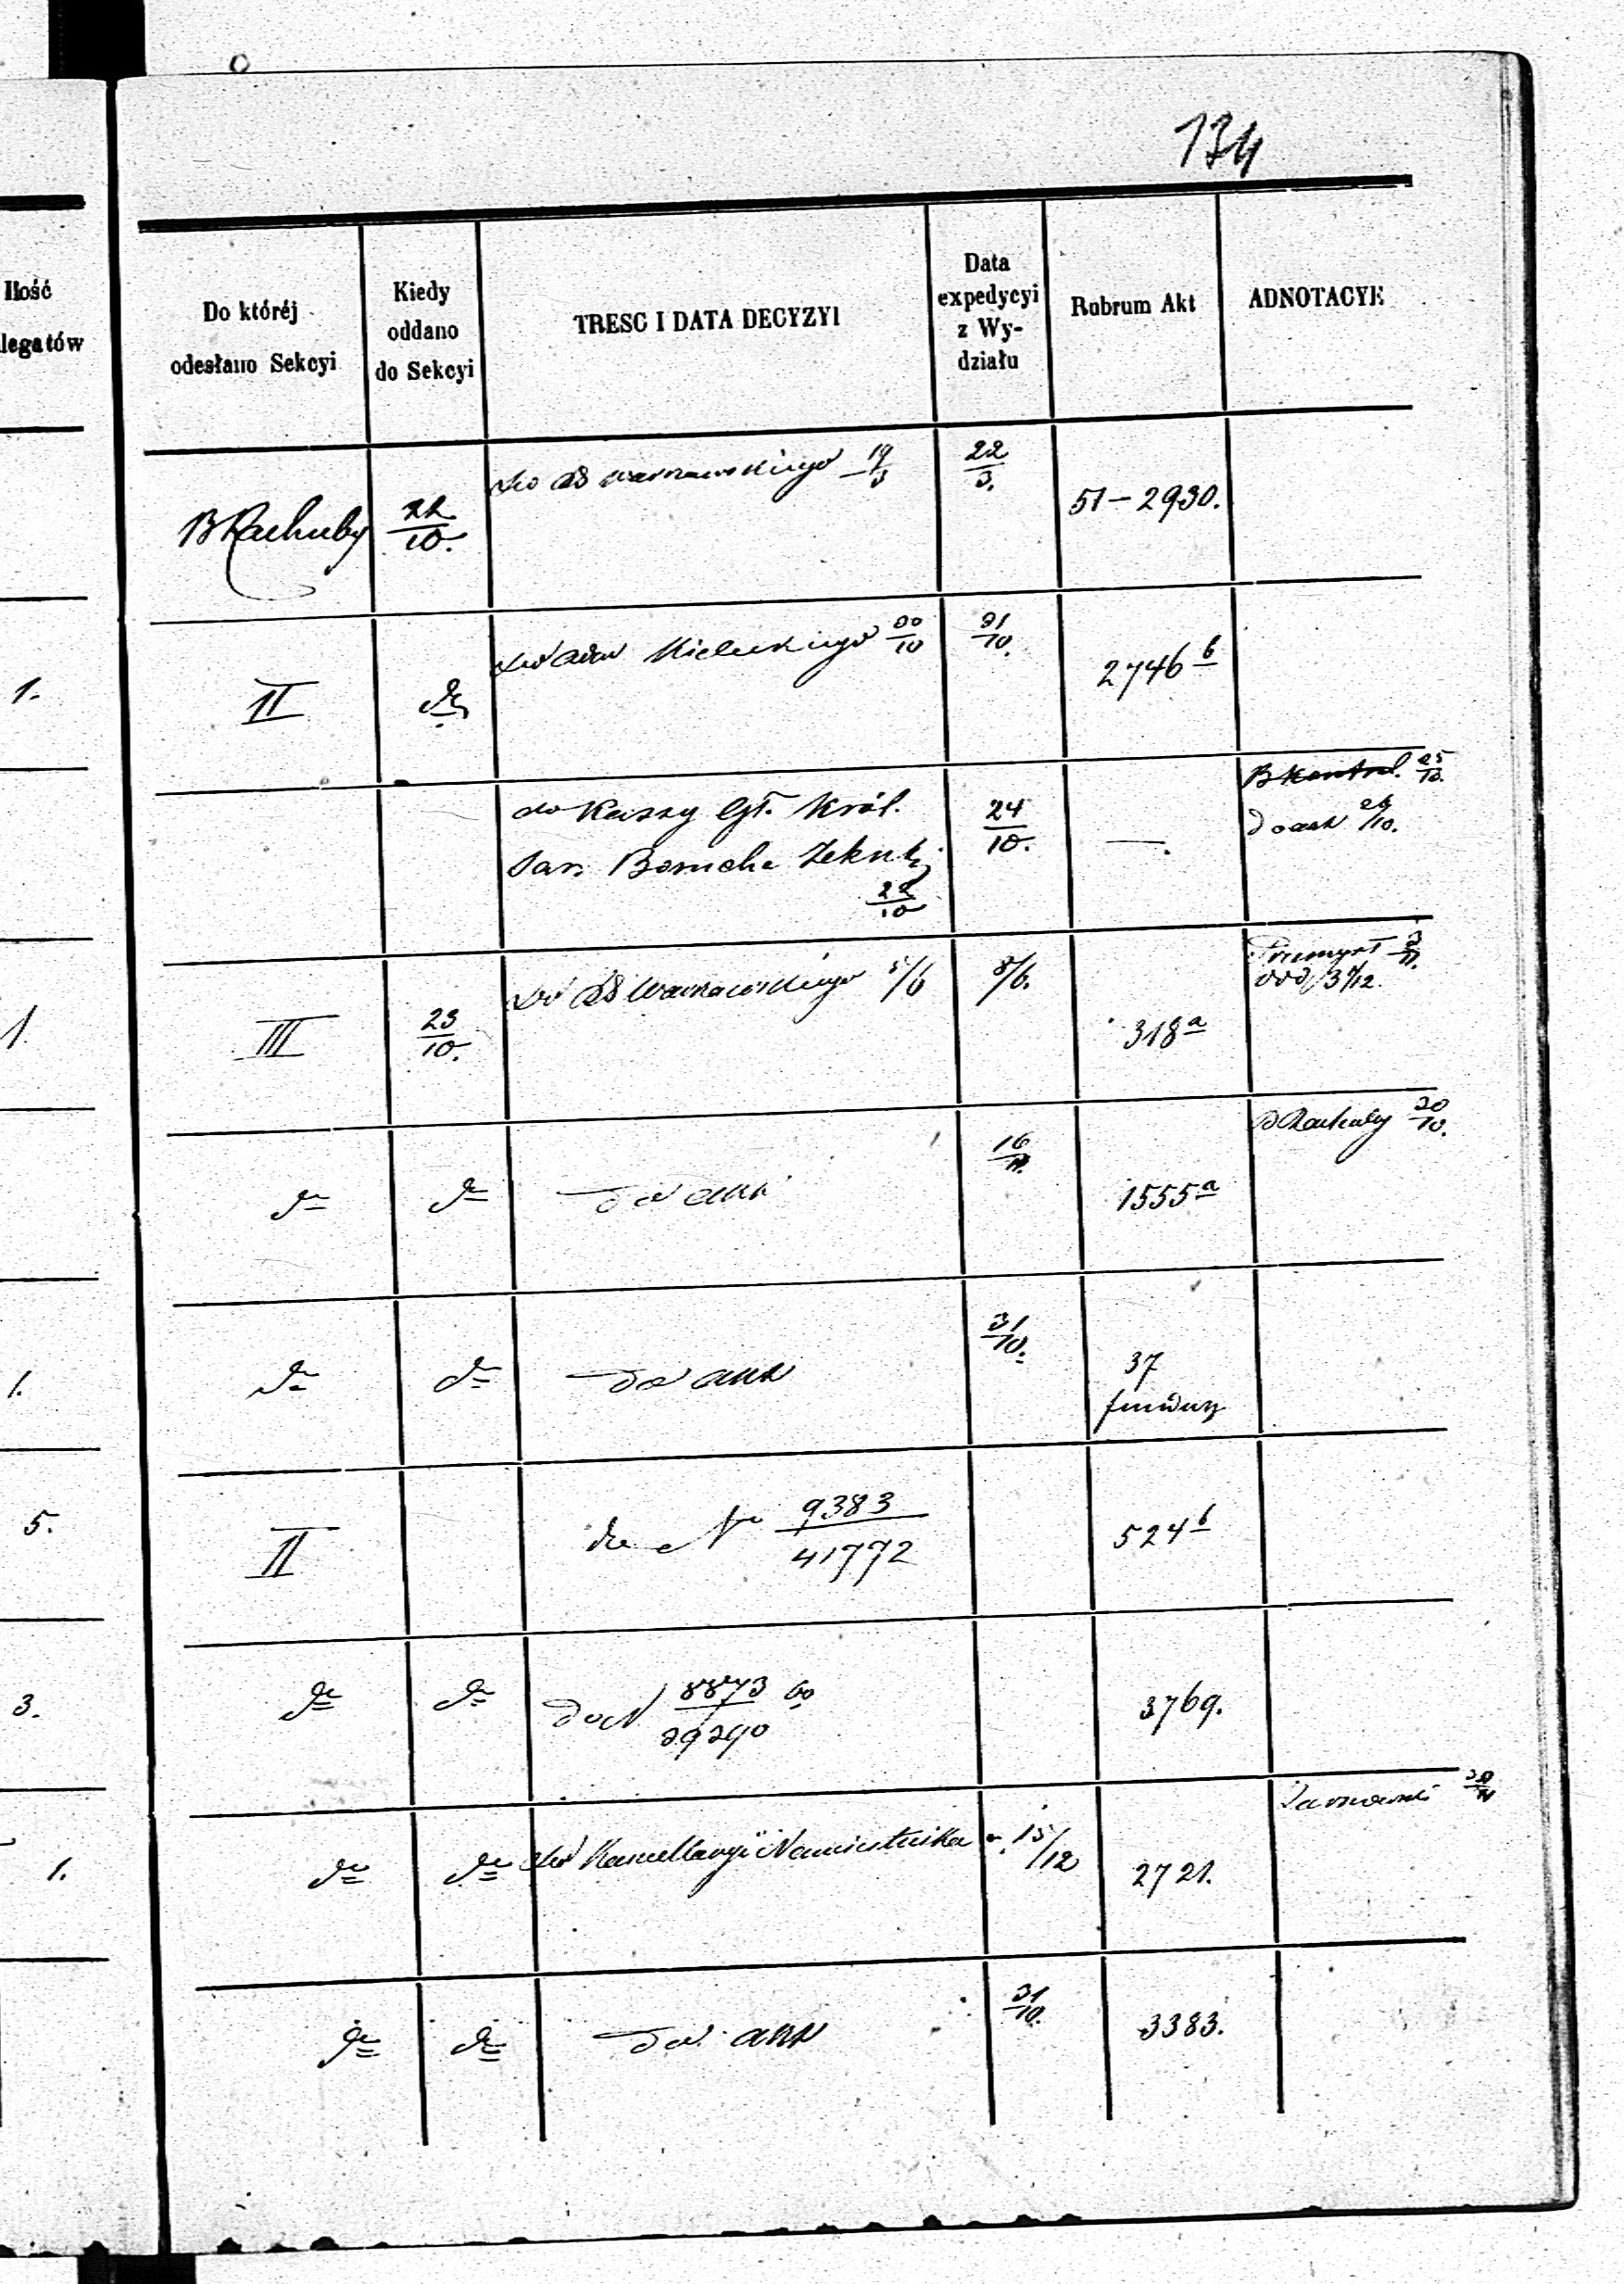 134
Ilość
legatów
Do któréj
odesłano Sekcyi
Kiedy
oddano
do Sekcyi
TRESC I DATA DECYZYI
Data
expedycyi
z Wy-
działu
Rubrum Akt
ADNOTACYE
B Rachuby
22/10.
do Warszawskiego 19/3
22/3.
51 - 2930.
1.
II
do
Kieleckiego 30/10
31/10.
2746 b
do Kassy Gł. Król.
24/10.
—.
B Kontrol. 25/10.
do akt 26/10.
22/10
1
III
23/10.
do Warszawskiego 5/6
8/6.
318 a
do
do
do akt
16/11.
1555 a
B Rachuby 30/10.
1.
do
do
do akt
31/10.
37
fundusz
5.
II
do N 9383/41772
524 b
3.
do
do
do N 8873/29290
3769.
1.
do
do
do Kancellaryi Namiestnika
15/12
2721.
do
do
do akt
31/10.
3383.